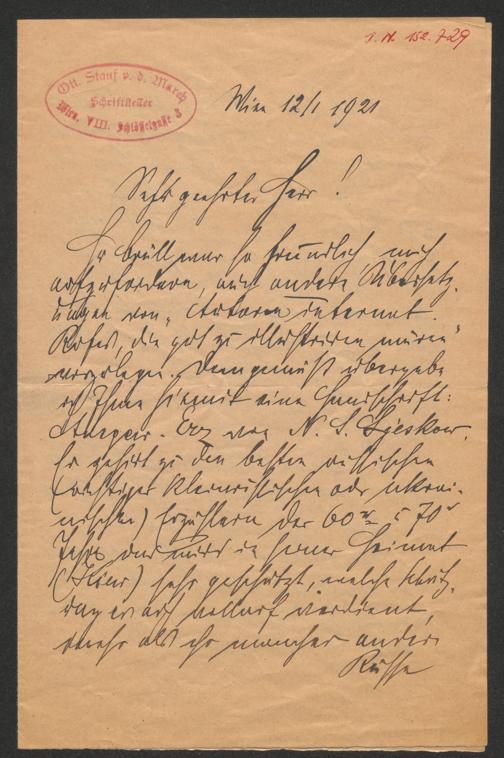 I. N. 152.729
Ott. Stauf v. d. March
Schriftsteller
Wien, VIII. Schlösselgasse 3
Wien 12/1 1921
Sehr geehrter Herr!
Dr Brüll war so freundlich, mich
aufzufordern, auch andere Übersetz-
ungen von „Autoren internat.
Rufes, die gut zu illustrieren wären“
vorzulegen. Demgemäß übergebe
ich Ihnen hiemit eine Handschrift:
von N. S. Ljeskow.
Er gehört zu den besten russischen
(richtiger kleinrussischen oder ukrai-
nischen) Erzählern der 60er u 70er
Jahre und wird in seiner Heimat
(Kiew) sehr geschätzt, welche Schätz-
ung er auch vollauf verdient,
mehr als so mancher andere
Russe